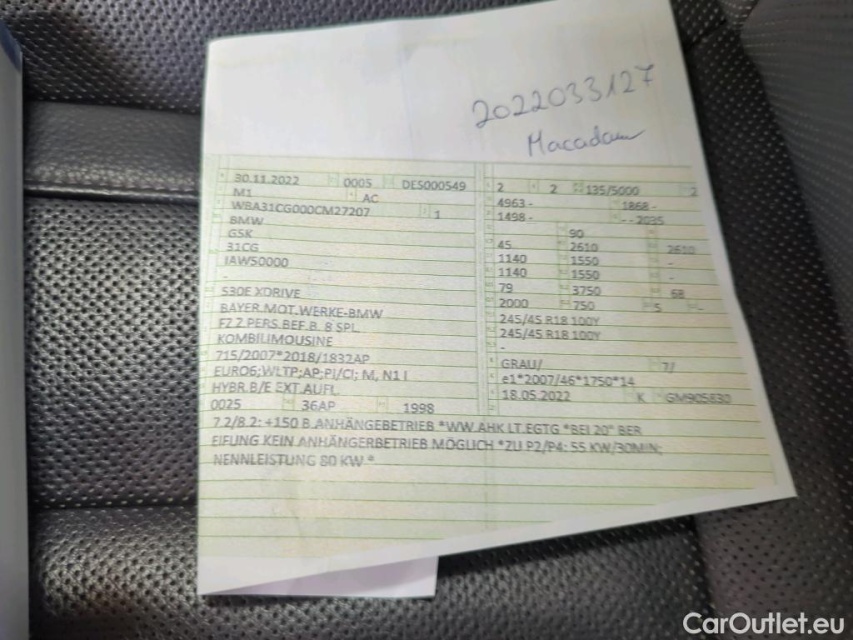 2022033127
Macadam
30.11.2022 0005 DE5000549 2 2 135/5000 2
M1 AC 4963 - 1868 -
WBA31CG000CM27207 1 1498 - - - 2035
BMW 90
G5K 45 2610 2610
31CG 1140 1550 -
IAW50000 1140 1550 -
- 79 3750 68
530E XDRIVE 2000 750 5 -
BAYER.MOT.WERKE-BMW 245/45 R18 100Y
FZ.Z.PERS.BEF.B. 8 SPL. 245/45 R18 100Y
KOMBILIMOUSINE -
715/2007*2018/1832AP GRAU/ 7/
EURO6;WLTP;AP;PI/CI; M, N1 I e1*2007/46*1750*14
HYBR.B/E EXT.AUFL. 18.05.2022 K GM905830
0025 36AP 1998
7.2/8.2: +150 B.ANHÄNGEBETRIEB *WW.AHK LT.EGTG *BEI 20" BER
EIFUNG KEIN ANHÄNGERBETRIEB MÖGLICH *ZU P2/P4: 55 KW/30MIN;
NENNLEISTUNG 80 KW *
CarOutlet.eu